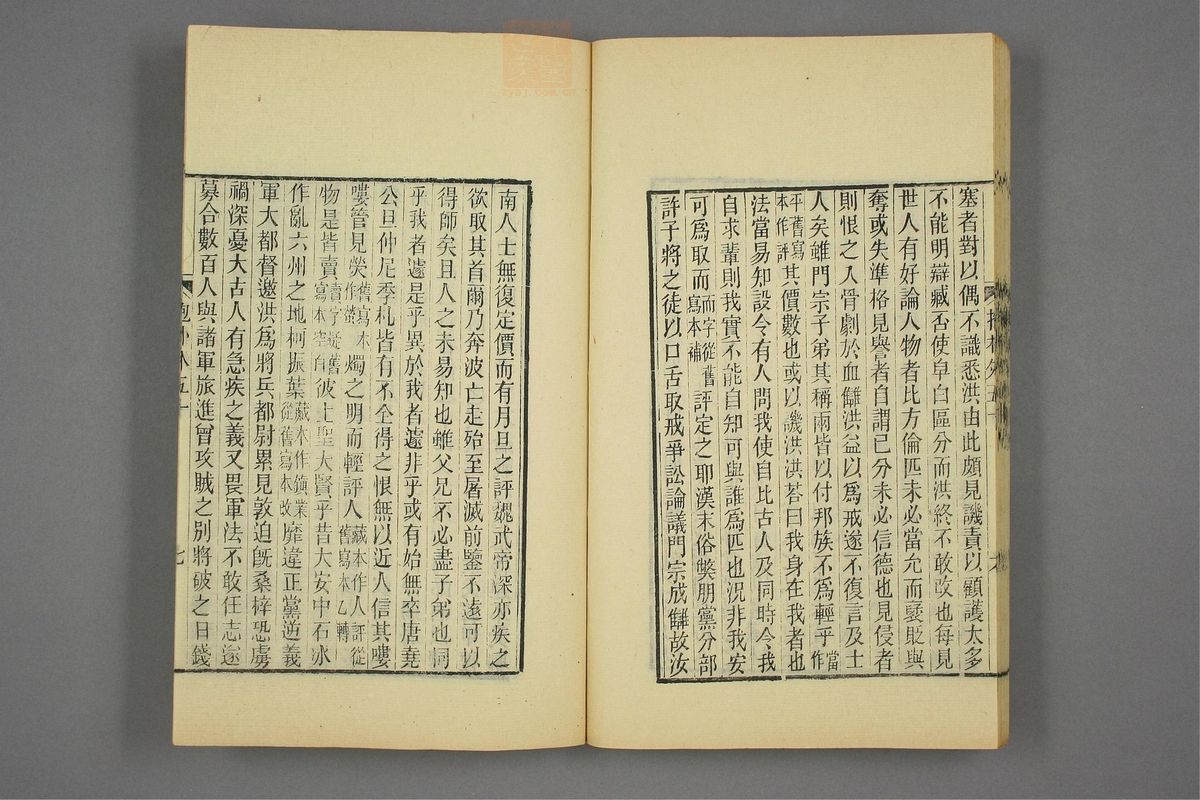 塞者對以偶不識悉洪由此頗見譏責以顧護太多
不能明辯臧否使皁白區分而洪終不敢改也每見
世人有好論人物者比方倫匹未必當允而襃貶與
奪或失準格見譽者自謂己分未必信德也見侵者
則恨之入骨劇於血讎洪益以爲戒遂不復言及士
人矣雖門宗子弟其稱兩皆以付邦族不爲輕乎當作
平舊寫本作評其價數也或以譏洪洪荅曰我身在我者也
法當易知設令有人問我使自比古人及同時令我
自求輩則我實不能自知可與誰爲匹也況非我安
可爲取而而字從舊寫本補評定之耶漢末俗獘朋黨分部
許子將之徒以口舌取戒爭訟論議門宗成讎故汝
南人士無復定價而有月旦之評魏武帝深亦疾之
欲取其首爾乃奔波亡走殆至屠滅前鑒不遠可以
得師矣且人之未易知也雖父兄不必盡子弟也同
乎我者遽是乎異於我者遽非乎或有始無卒唐堯
公旦仲尼季札皆有不全得之恨無以近人信其嘍
嘍管見熒舊寫本作螢燭之明而輕評人藏本作人評從舊寫本乙轉
物是皆賣賣字疑舊寫本空白彼上聖大賢乎昔大安中石冰
作亂六州之地柯振葉藏本作鎭業從舊寫本改靡違正黨逆義
軍大都督邀洪爲將兵都尉累見敦迫旣桑梓恐虜
禍深憂大古人有急疾之義又畏軍法不敢任志遂
募合數百人與諸軍旅進曾攻賊之别將破之日錢
抱朴外五十
七